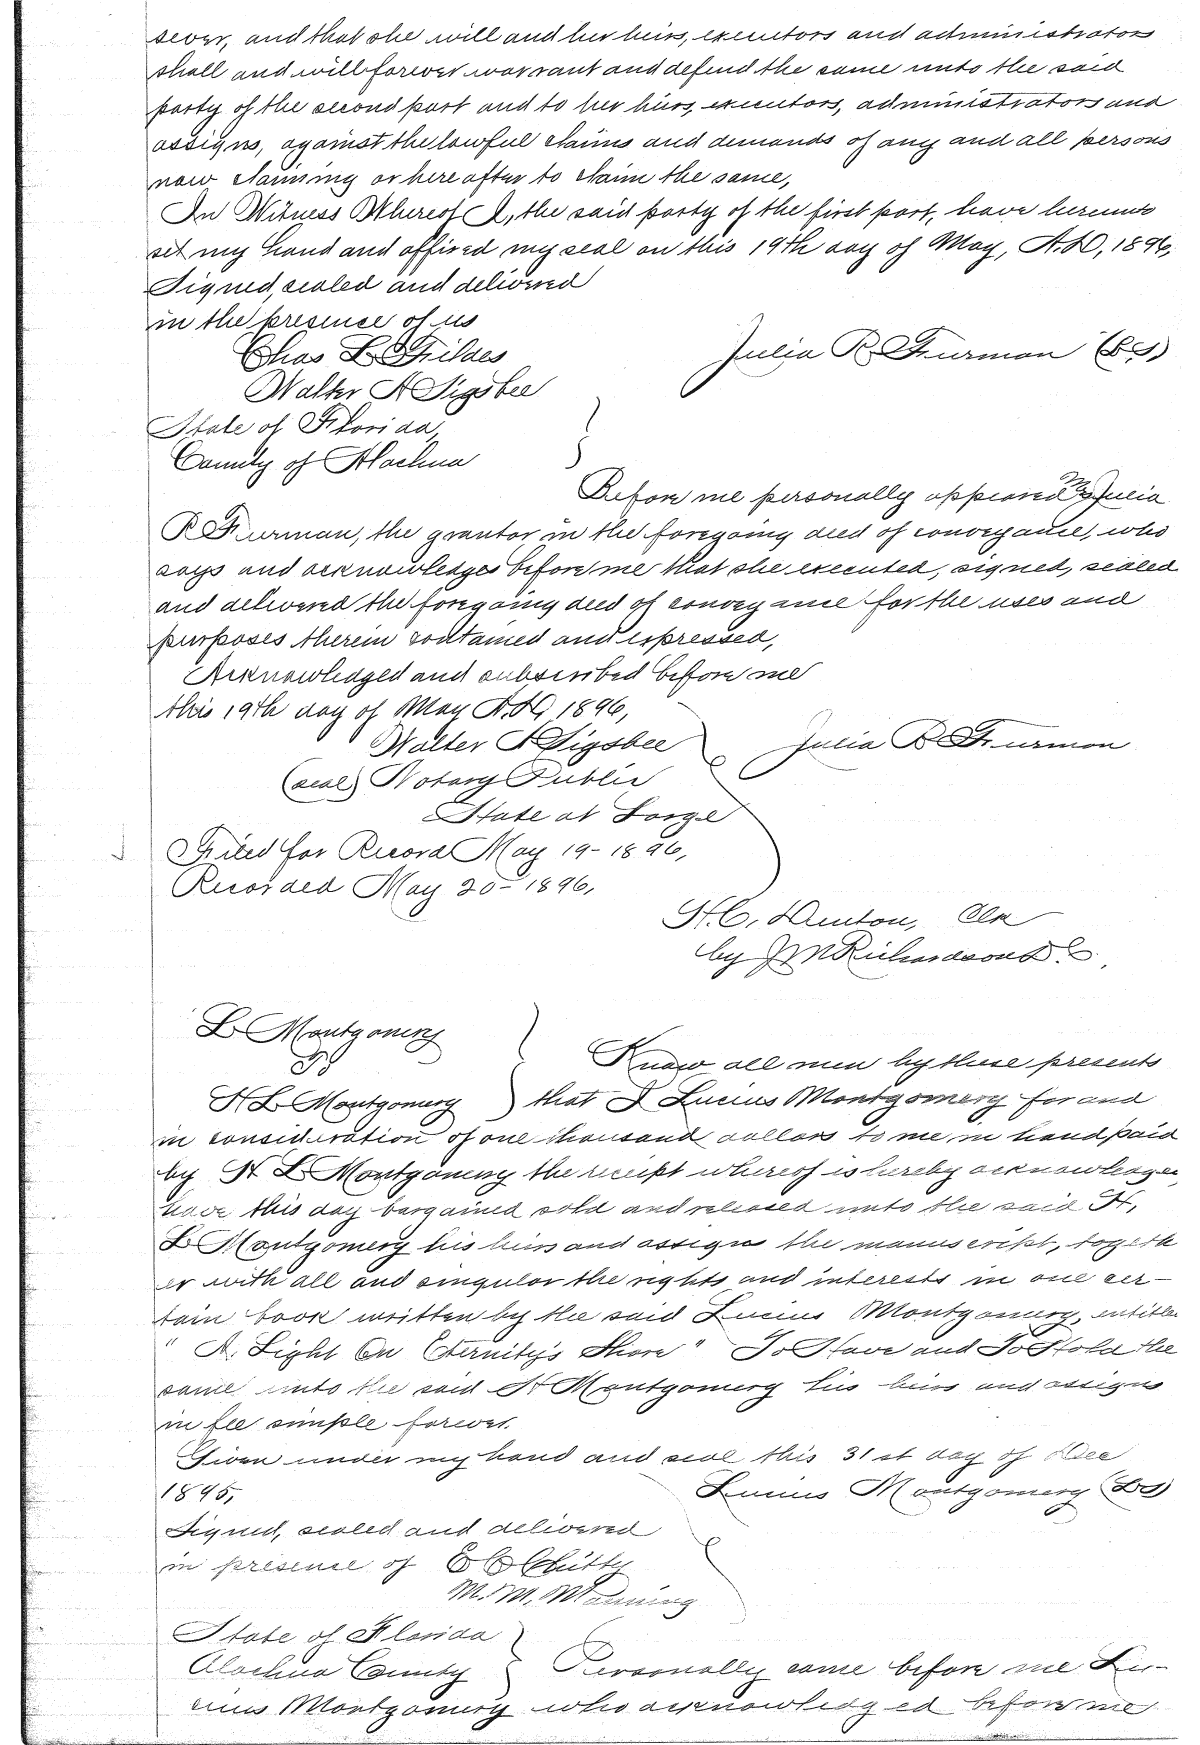 soever, and that she will and her heirs, executors and administrators
shall and will forever warrant and defend the same unto the said
party of the second part and to her heirs, executors, administrators and
assigns, against the lawful claims and demands of any and all persons
now claiming or hereafter to claim the same,
In Witness Whereof I, the said party of the first part, have hereunto
set my hand and affixed my seal on this 19th day of May, A.D, 1896,
Signed, sealed and delivered
in the presence of us
Chas L Fildes
Julia R Furman (LS)
Walter A Sigsbee
State of Florida,
County of Alachua
Before me personally appeared Julia
R Furman, the grantor in the foregoing deed of conveyance, who
says and acknowledges before me that she executed, signed, sealed
and delivered the foregoing deed of conveyance for the uses and
purposes therein contained and expressed,
Acknowledged and subscribed before me
this 19th day of May A.D, 1896,
Walter A Sigsbee
Julia R Furman
(seal) Notary Public
State at Large
Filed for Record May 19-1896,
Recorded May 20-1896,
H.C. Denton, Clk
by J M Richardson D.C.
L Montgomery
To
Know all men by these presents
H L Montgomery
that I Lucius Montgomery for and
in consideration of one thousand dollars to me in hand paid
by H L Montgomery the receipt whereof is hereby acknowledged,
have this day bargained sold and released unto the said H,
L Montgomery his heirs and assigns the manuscript, togeth
er with all and singular the rights and interests in one cer-
tain book written by the said Lucius Montgomery, entitled
" A. Light On Eternity's Shore" To Have and To Hold the
same unto the said H Montgomery his heirs and assigns
in fee simple forever.
Given under my hand and seal this 31st day of Dec
1895,
Lucius Montgomery (LS)
Signed, sealed and delivered
in presence of
M. M. Manning
State of Florida
Alachua County
Personally came before me Lu-
cius Montgomery who acknowledged before me